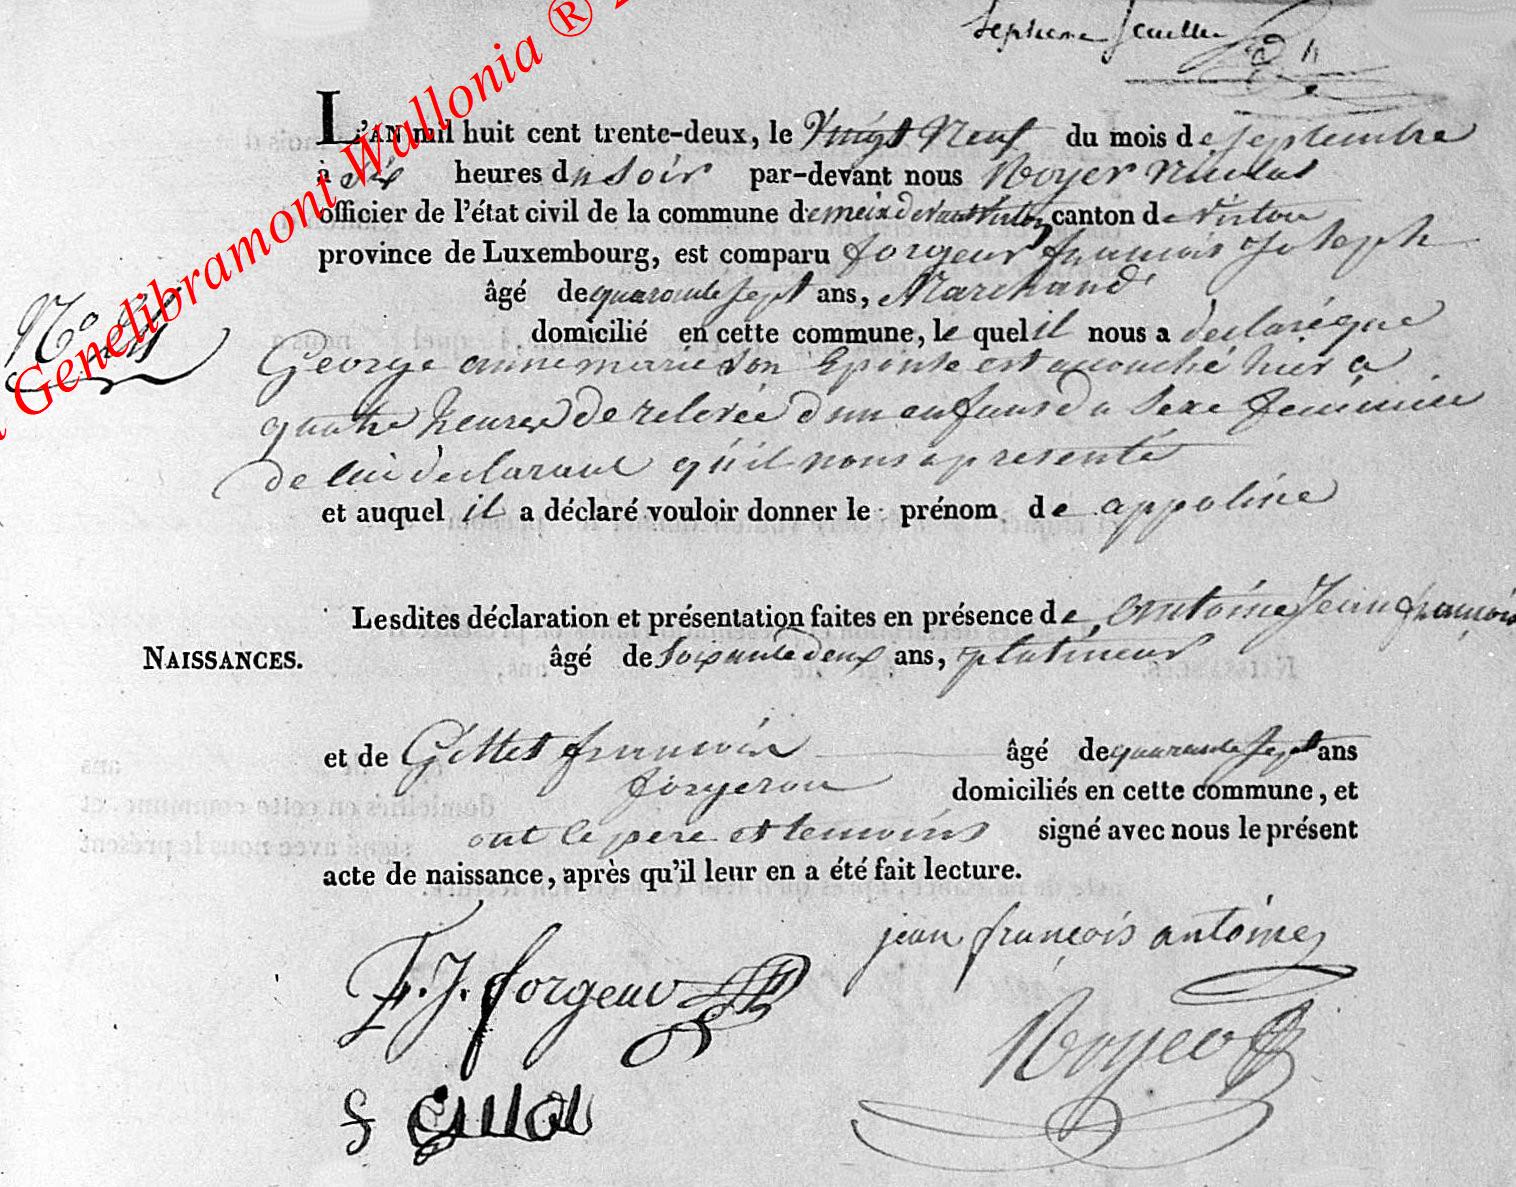 L'AN mil huit cent trente-deux, le Vingt Neuf du mois de Septembre
à Six heures du Soir par-devant nous Royer Nicolas
officier de l'état civil de la commune de meix devant Virton canton de Virton
province de Luxembourg, est comparu forgeur françois Joseph
âgé de quarante Sept ans, Marchand
domicilié en cette commune, le quel il nous a declaré que
George anne marie Son Epouse est accouché hier a
quatre heures de relevée d'un enfans du Sexe feminin
de lui declarant qu'il nous a presenté
et auquel il a déclaré vouloir donner le prénom de appoline
Lesdites déclaration et présentation faites en présence de Antoine Jean françois
NAISSANCES. âgé de Soixante deux ans, platineur
et de Gillet françois âgé de quarante Sept ans
forgeron domiciliés en cette commune, et
ont le pere et temoins signé avec nous le présent
acte de naissance, après qu'il leur en a été fait lecture.
jean françois antoine
F. J. forgeur
Royer
f Gillet
Genelibramont Wallonia ®